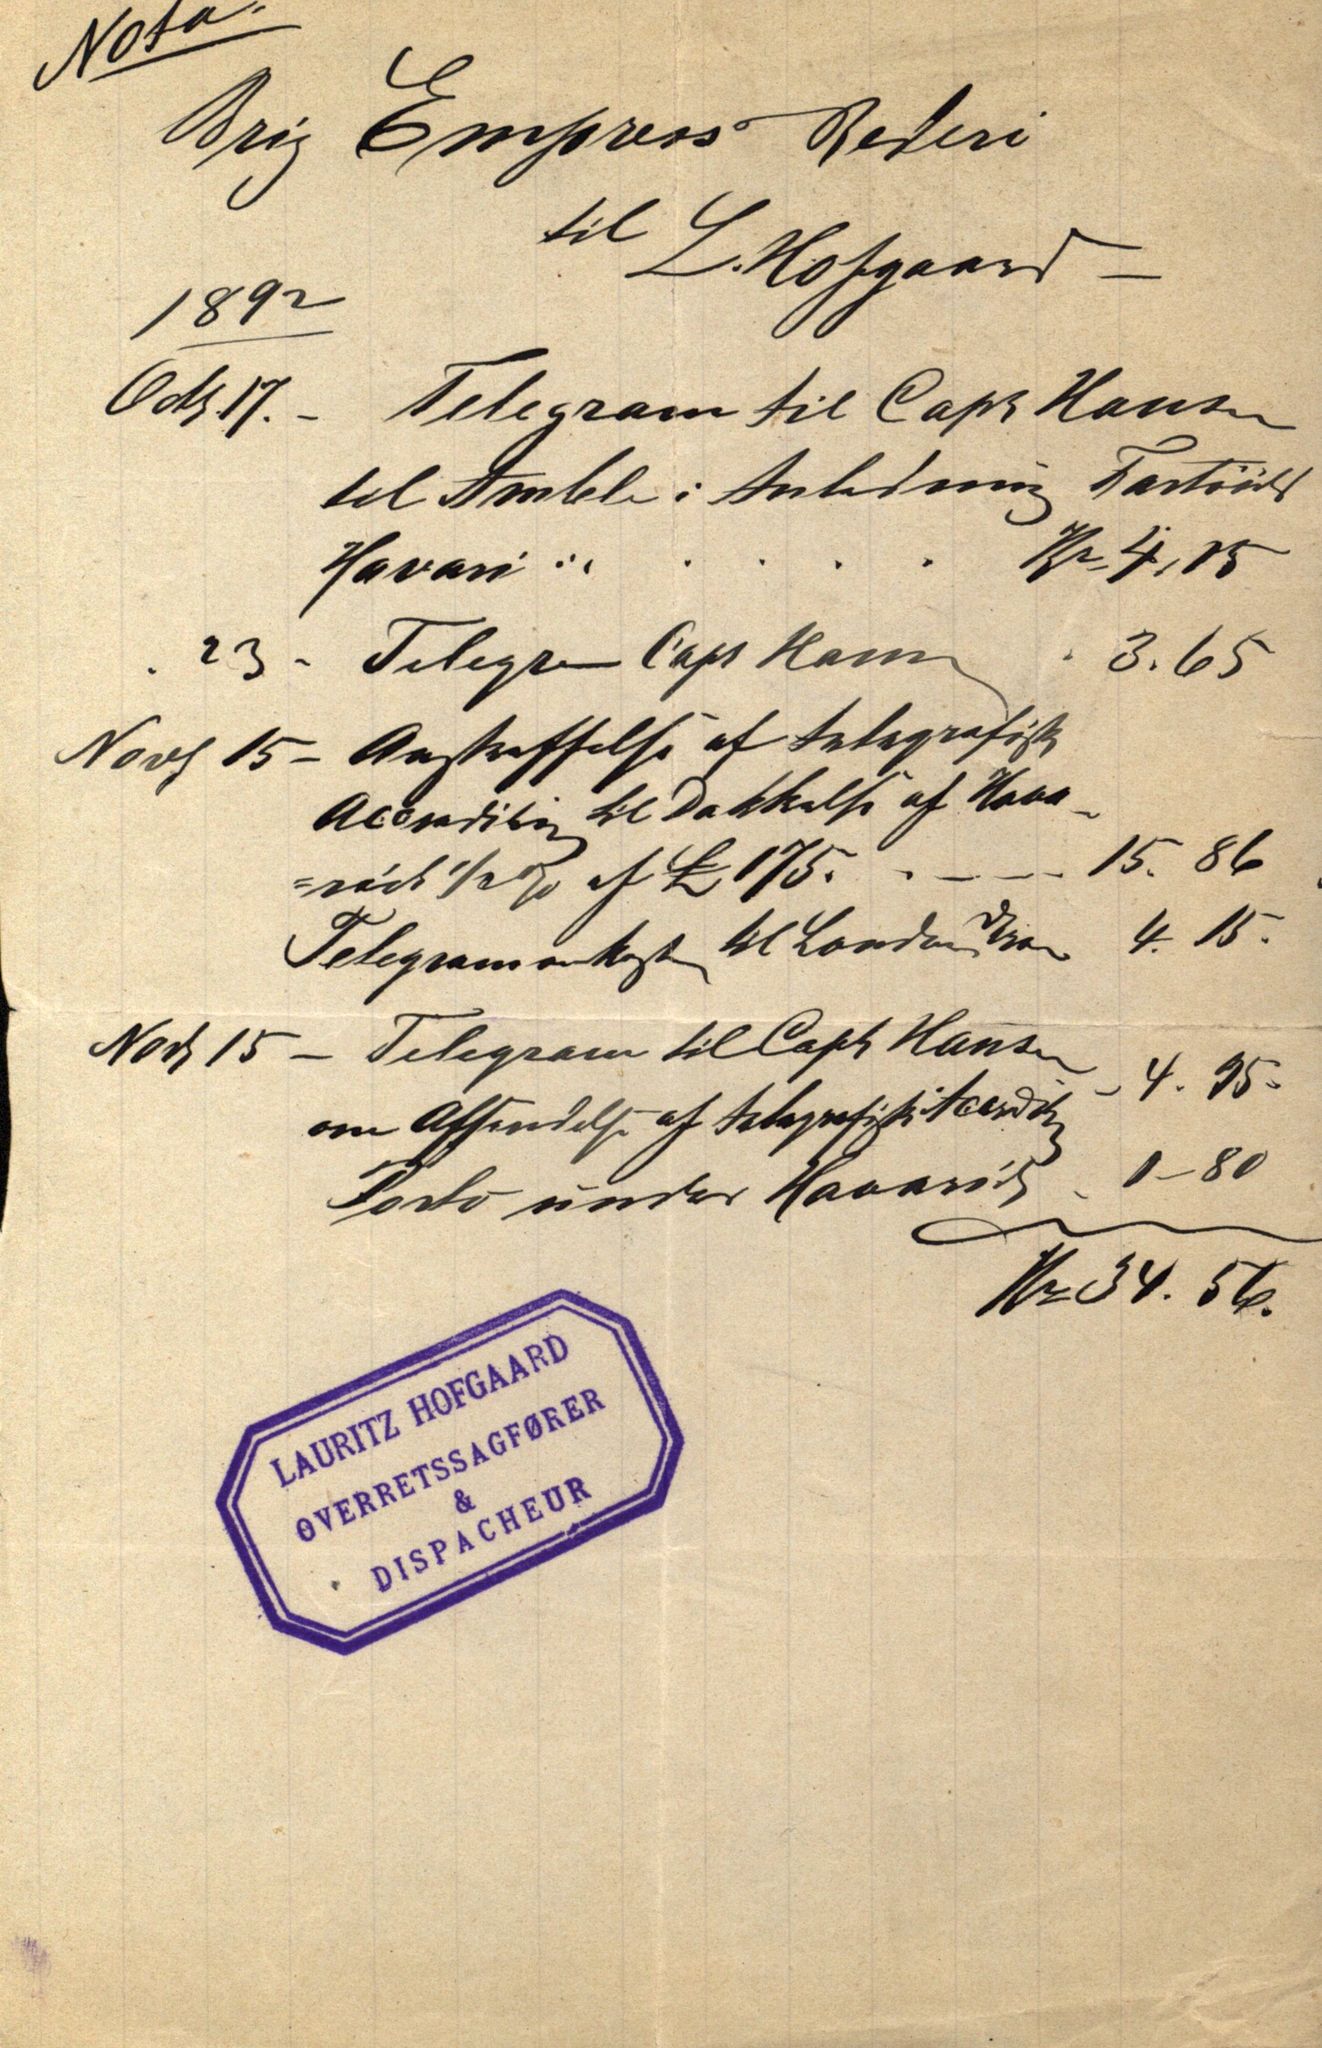 Nota.
Brig Empress Rederi
til L. Hofgaard –
1892
Octb. 17. – Telegram til Capt Hansen
til Amble i Anledning Fartöiets
Havari . . . . . Kr. 4.15
. 23 – Telegram Capt Hansen . 3.65
Novb 15 – Anskaffelse af telegrafisk
Accreditiv til Dækkelse af Hava-
=riets 1/2 % af £ 175. . – – – 15. 86
Telegramomkostn til London 4. 15.
Novb 15 – Telegram til Capt Hansen
om Afsendelse af telegrafisk Accreditiv – 4. 95 –
Porto under Havariet – 1–80
Kr 34. 56.
LAURITZ HOFGAARD
OVERRETSSAGFØRER
&
DISPACHEUR